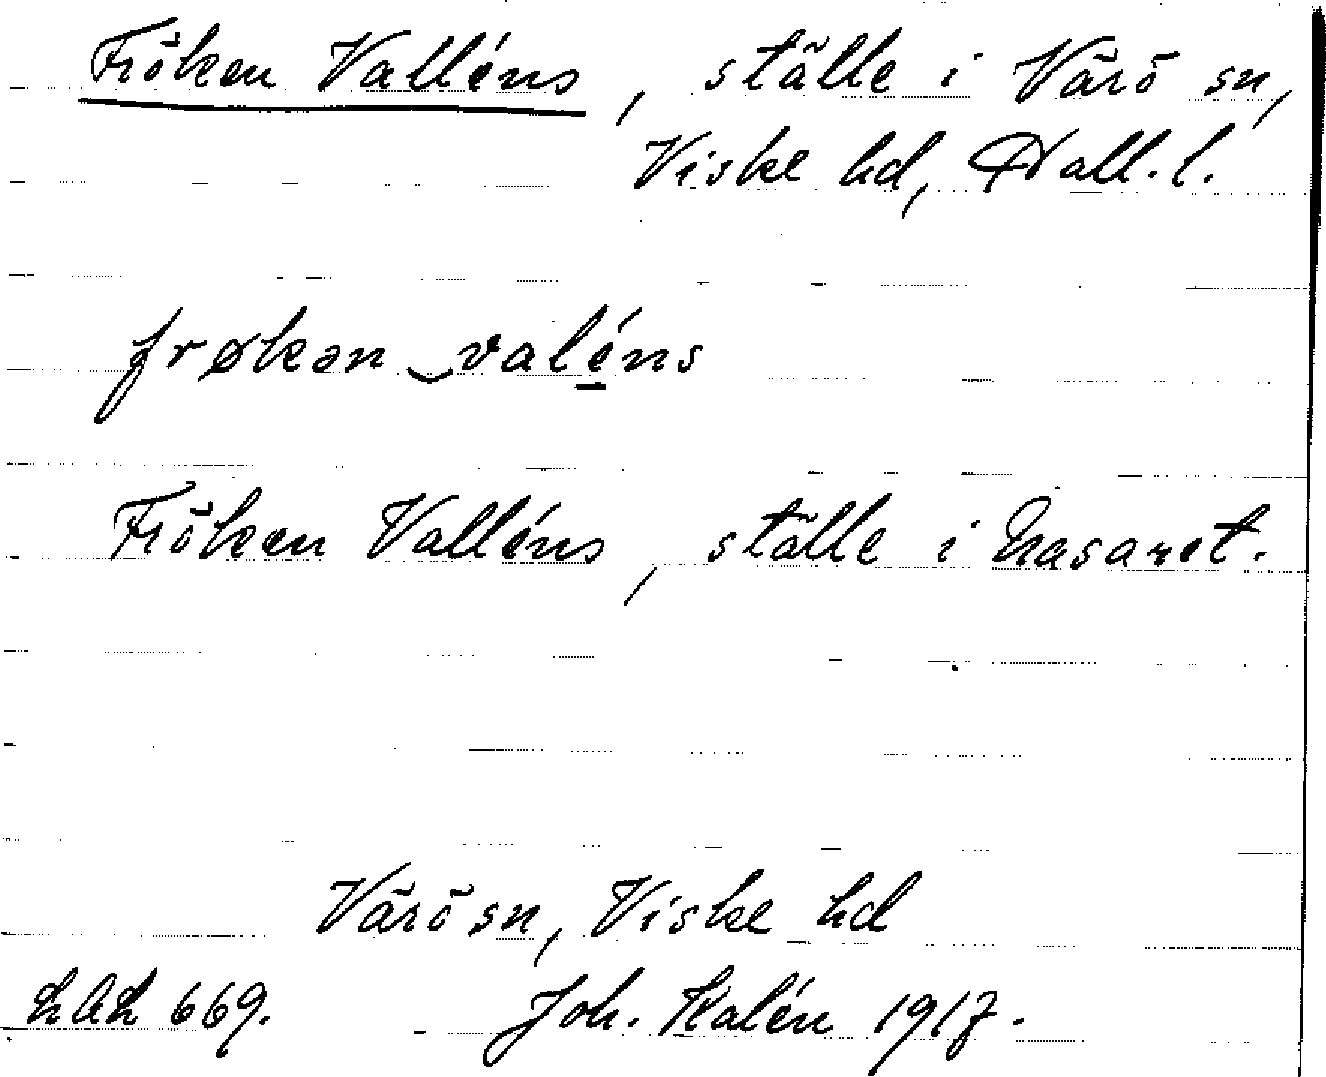 Fröken Valléns, ställe i Värö sn,
Viske hd, Hall. l.
frøkən‿valéns
Fröken Valléns, ställe i Nasaret.
Värö sn, Viske hd
669. Joh. Kalén 1917.